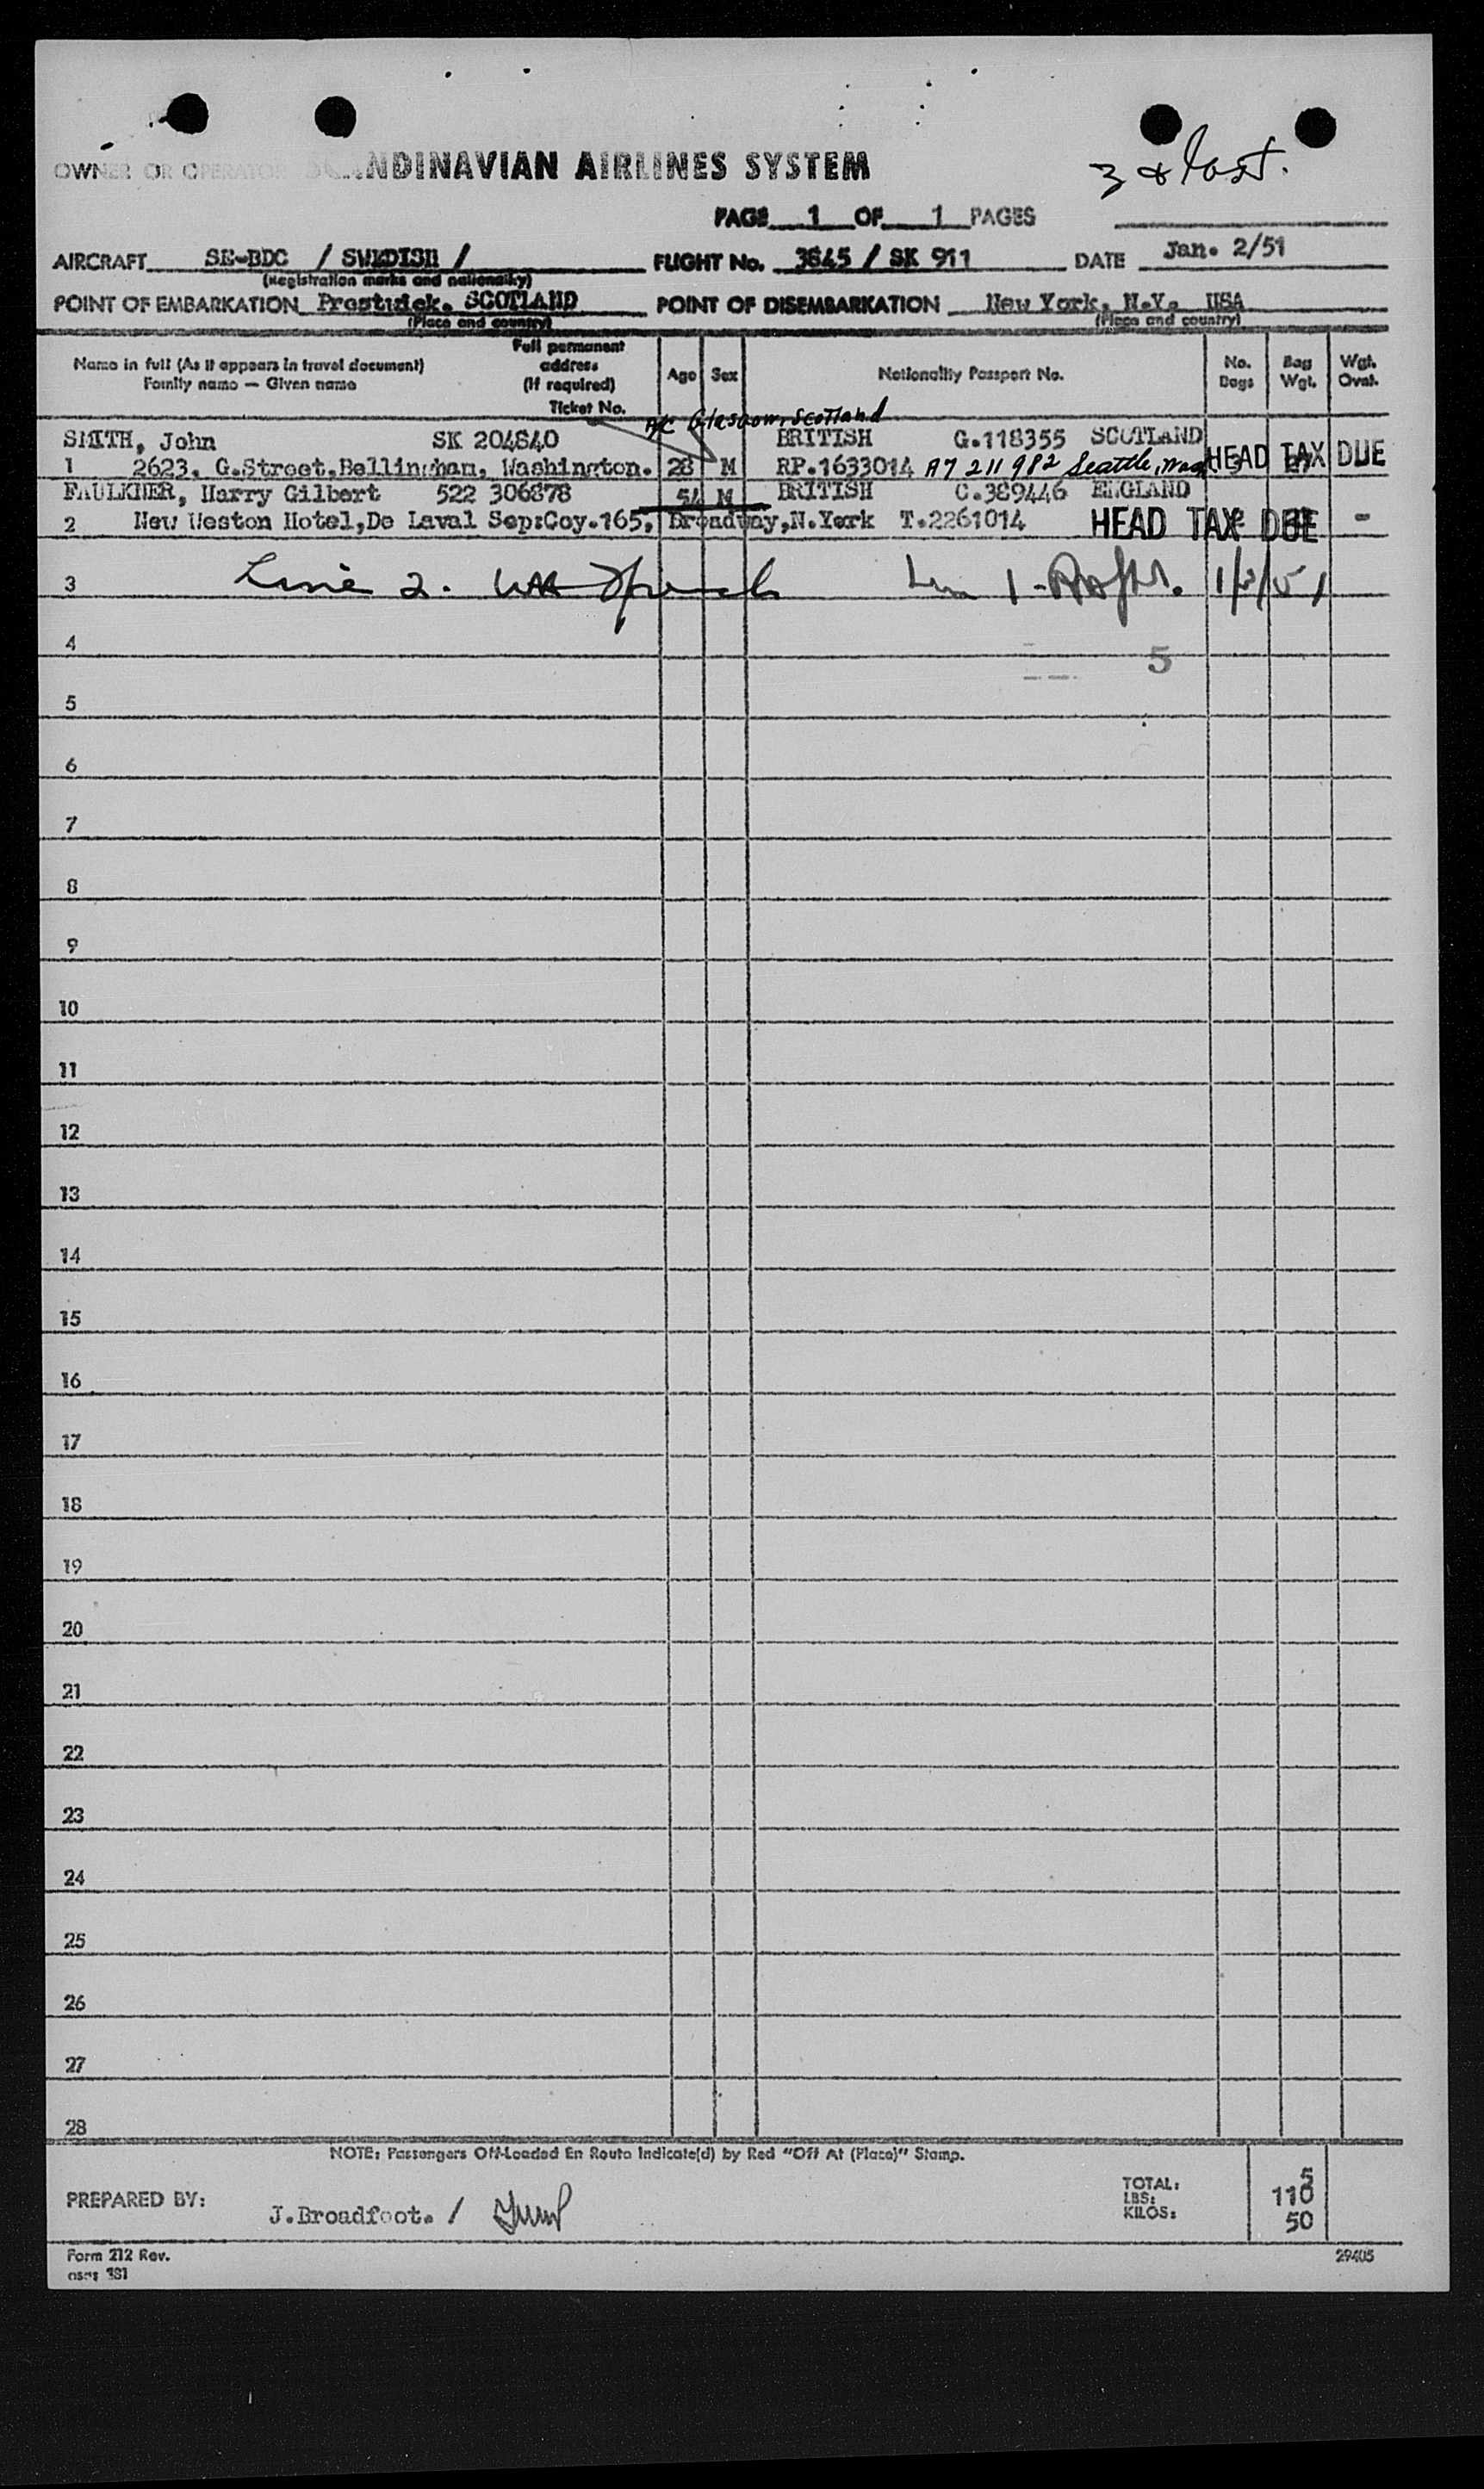 3 & last.
OWNER OR OPERATOR SCANDINAVIAN AIRLINES SYSTEM
PAGE 1 OF 1 PAGES
AIRCRAFT SE-BDC / SWEDISH / FLIGHT No. 3645 / SK 911 DATE Jan. 2/51
(Registration marks and nationality)
POINT OF EMBARKATION Prestwick. SCOTLAND POINT OF DISEMBARKATION New York, N.Y. USA
(Place and country) (Place and country)
Name in full (As it appears in travel document) Family name — Given name Full permanent address (If required) Ticket No. Age Sex Nationality Passport No. No. Bags Bag Wgt. Wgt. Ovat.
Glasgow, Scotland
SMITH, John SK 204840 BRITISH G.118355 SCOTLAND
1 2623, G.Street,Bellingham, Washington. 28 M RP.1633014 A7 211 982 Seattle, Wash HEAD TAX DUE
FAULKNER, Harry Gilbert 522 306878 54 M BRITISH C.389446 ENGLAND
2 New Weston Hotel,De Laval Sep:Coy.165, Broadway,N.York T.2261014 HEAD TAX DUE -
3 Line 2. 1/2/51
4 5
5
6
7
8
9
10
11
12
13
14
15
16
17
18
19
20
21
22
23
24
25
26
27
28
NOTE: Passengers Off-Loaded En Route Indicate(d) by Red "Off At (Place)" Stamp.
PREPARED BY: J.Broadfoot. /
TOTAL: 5
LBS: 110
KILOS: 50
Form 212 Rev. 29405